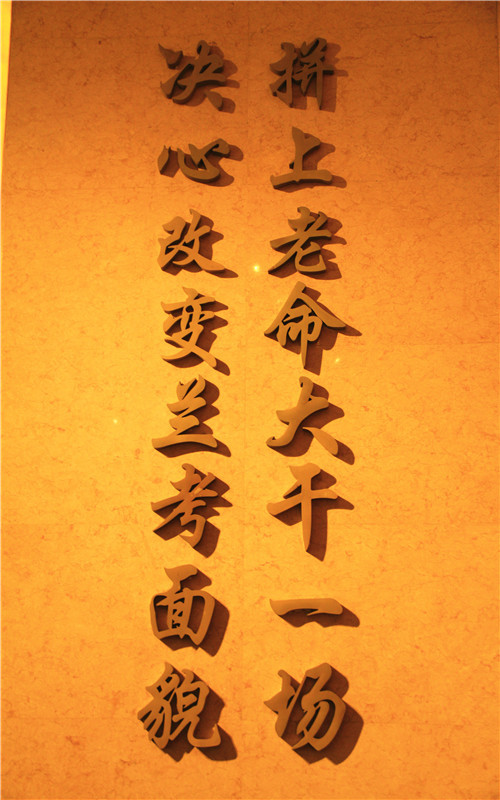 拼上老命大干一场
决心改变兰考面貌